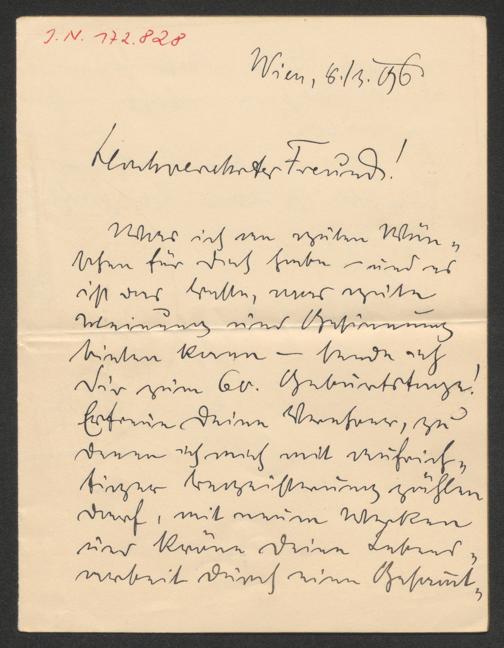 J.N. 172.828
Wien, 8./3. 96
Hochverehrter Freund!
Was ich an guten Wün-
schen für Dich habe – und es
ist das beste, was gute
Meinung und Gesinnung
bieten kann – sende ich
Dir zum 60. Geburtstage!
Erfreue Deine Verehrer, zu
denen ich mich mit aufrich-
tiger Begeisterung zählen
darf, mit neuen Werken
und kröne Deine Lebens-
arbeit durch eine Gesamt-